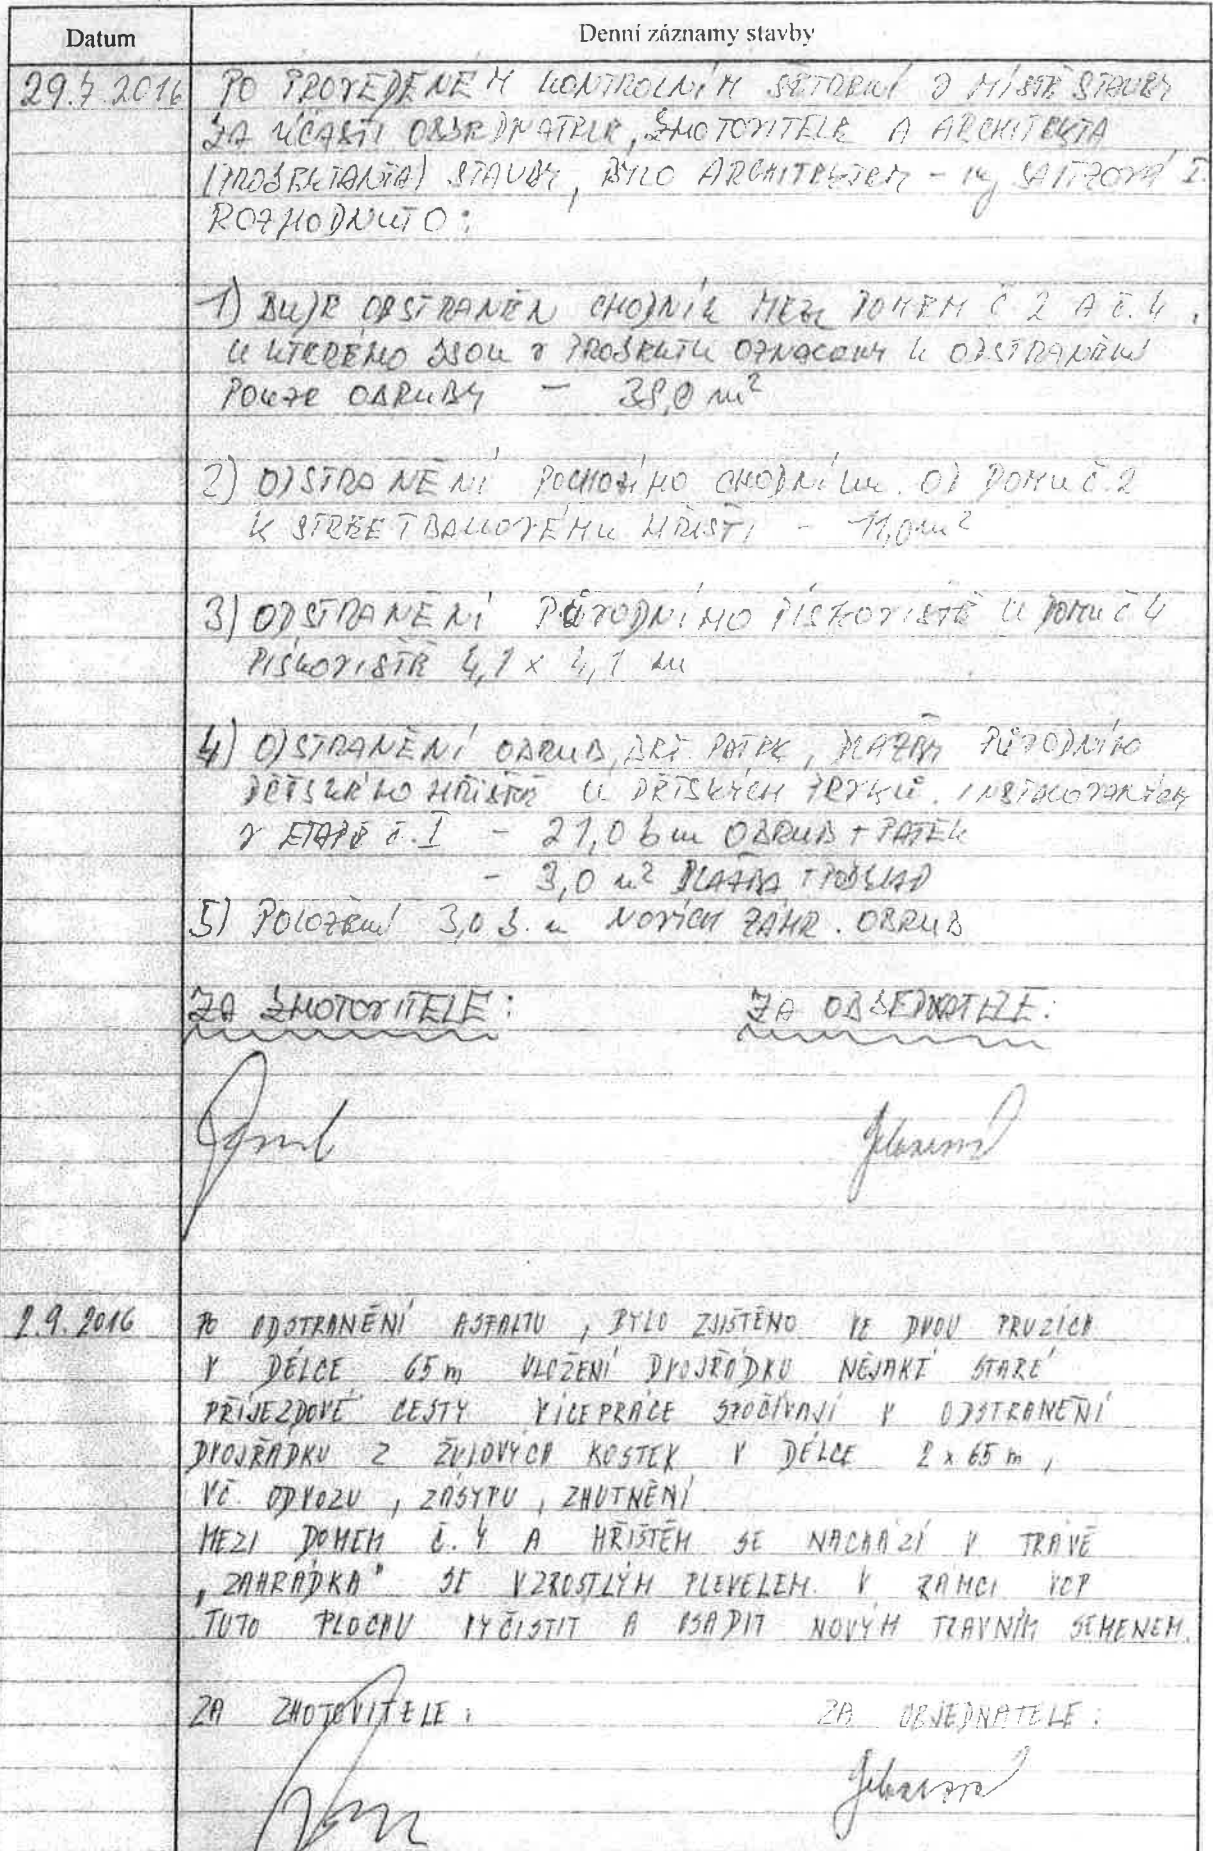 Datum
Denní záznamy stavby
29.7.2016
PO PROVEDENÉM KONTROLNÍM ŠETŘENÍ V MÍSTĚ STAVBY
ZA ÚČASTI OBJEDNATELE, ZHOTOVITELE A ARCHITEKTA
(PROJEKTANTA) STAVBY, BYLO ARCHITEKTEM - ING.
ROZHODNUTO:
1) BUDE ODSTRANĚN CHODNÍK MEZI DOMEM Č. 2 A Č. 4,
U KTERÉHO JSOU V PROJEKTU OZNAČENY K ODSTRANĚNÍ
POUZE OBRUBY - 38,0 m²
2) ODSTRANĚNÍ POCHOZÍHO CHODNÍKU OD DOMU Č. 2
K STREETBALOVÉMU HŘIŠTI - 11,0 m²
3) ODSTRANĚNÍ PŮVODNÍHO PÍSKOVIŠTĚ U DOMU Č 4
PÍSKOVIŠTĚ 4,1 x 4,1 m
4) ODSTRANĚNÍ OBRUB, BET. PATEK, DLAŽBY PŮVODNÍHO
DĚTSKÉHO HŘIŠTĚ U DĚTSKÝCH PRVKŮ INSTALOVANÝCH
V ETAPĚ Č. I - 21,0 bm OBRUB + PATEK
- 3,0 m² DLAŽBA + PODKLAD
5) POLOŽENÍ 3,0 b. m NOVÝCH ZAHR. OBRUB
ZA ZHOTOVITELE: ZA OBJEDNATELE:
2.9.2016
PO ODSTRANĚNÍ ASFALTU, BYLO ZJIŠTĚNO VE DVOU PRUZÍCH
V DÉLCE 65 m ULOŽENÍ DVOJŘÁDKU NĚJAKÉ STARÉ
PŘÍJEZDOVÉ CESTY VÍCEPRÁCE SPOČÍVAJÍ V ODSTRANĚNÍ
DVOJŘÁDKU Z ŽULOVÝCH KOSTEK V DÉLCE 2 x 65 m,
VČ. ODVOZU, ZÁSYPU, ZHUTNĚNÍ.
MEZI DOMEM Č. 4 A HŘIŠTĚM SE NACHÁZÍ V TRÁVĚ
"ZAHRÁDKA" SE VZROSTLÝM PLEVELEM. V RÁMCI VCP
TUTO PLOCHU VYČISTIT A OSADIT NOVÝM TRAVNÍM SEMENEM.
ZA ZHOTOVITELE: ZA OBJEDNATELE: